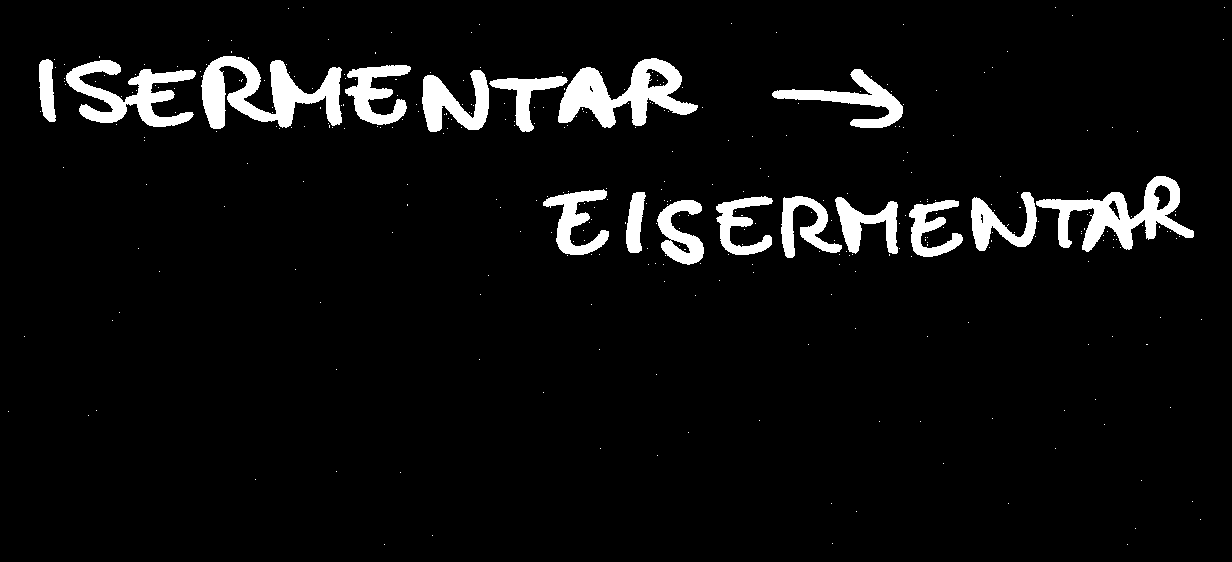 ISERMENTAR →
EISERMENTAR